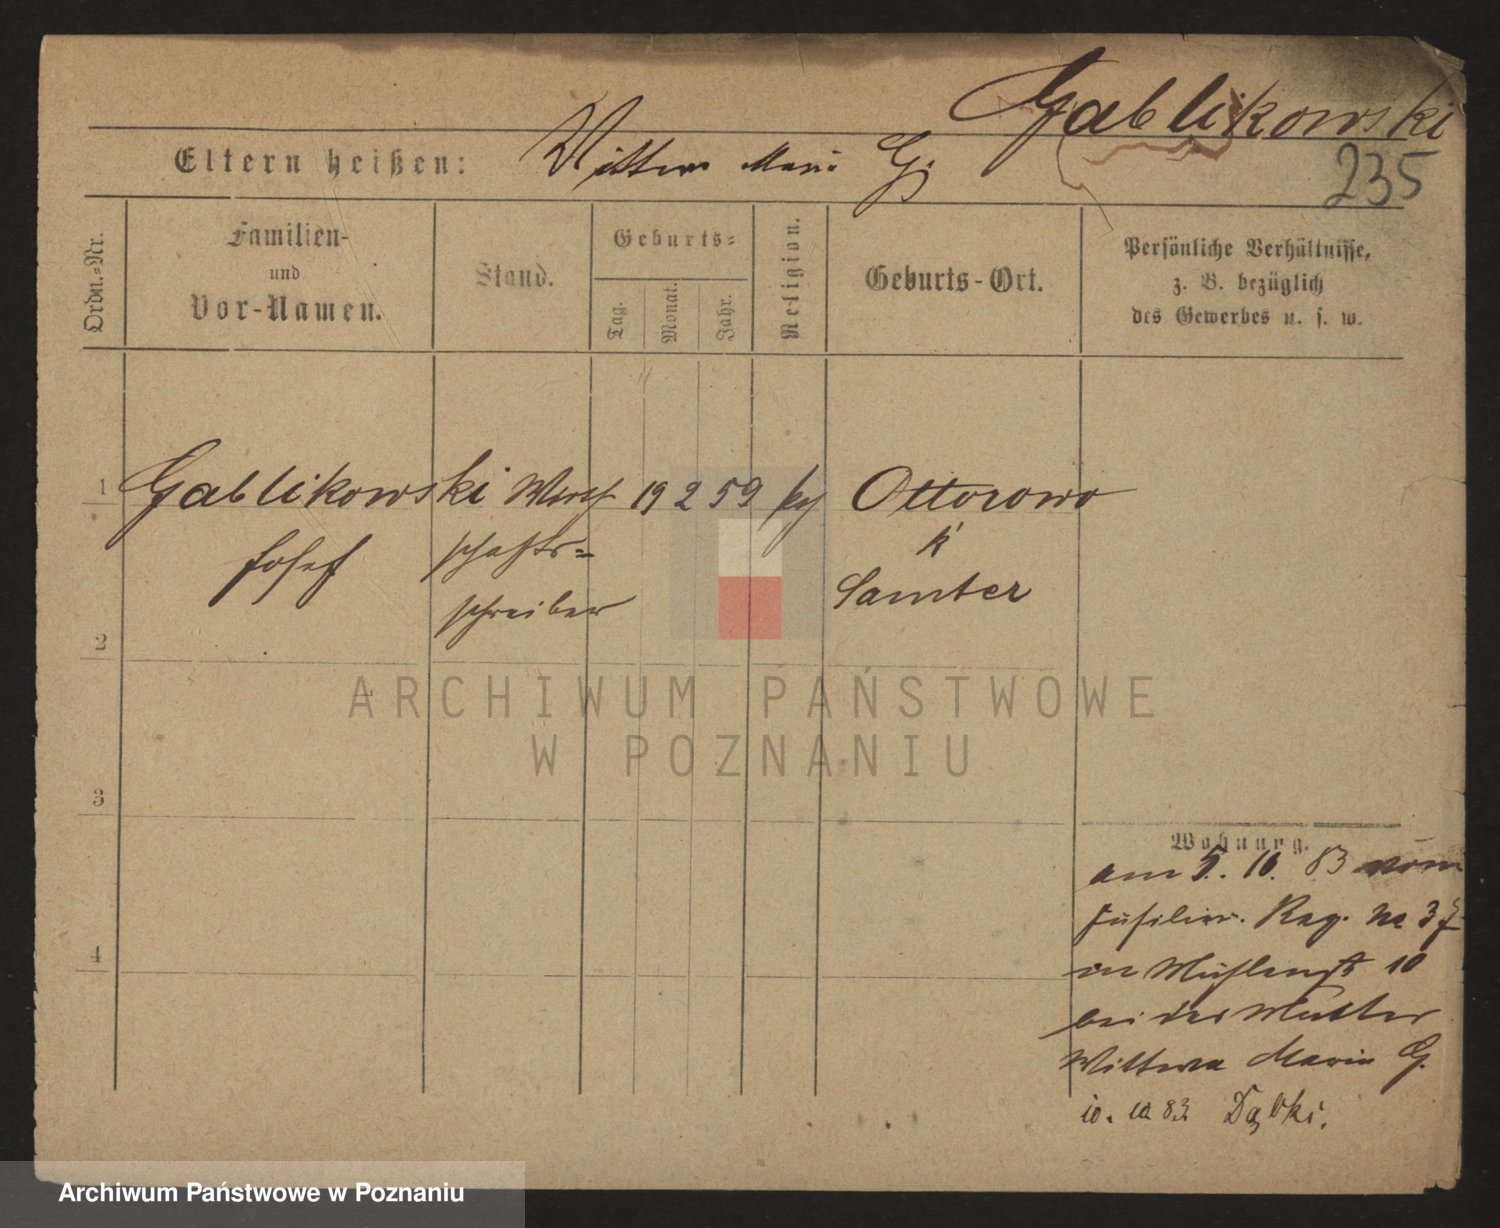 Gablikowski
Eltern heißen: Wittwe Marie G.
235
Ordn.=Nr.
Familien-
und
Vor-Namen.
Stand.
Geburts=
Tag.
Monat.
Jahr.
Religion.
Geburts-Ort.
Persönliche Verhältnisse,
z. B. bezüglich
des Gewerbes u. s. w.
1 Gablikowski Wirth 19 2 59 Ottorowo
Josef schafts= K
schreiber Samter
2
ARCHIWUM PAŃSTWOWE
W POZNANIU
3
Wohnung.
am 5. 10. 83 vom
Füsilier. Reg. No 37
in Mühlenstr 10
4
bei der Mutter
Wittwe Marie G.
10. 10 83 Dąbki.
Archiwum Państwowe w Poznaniu